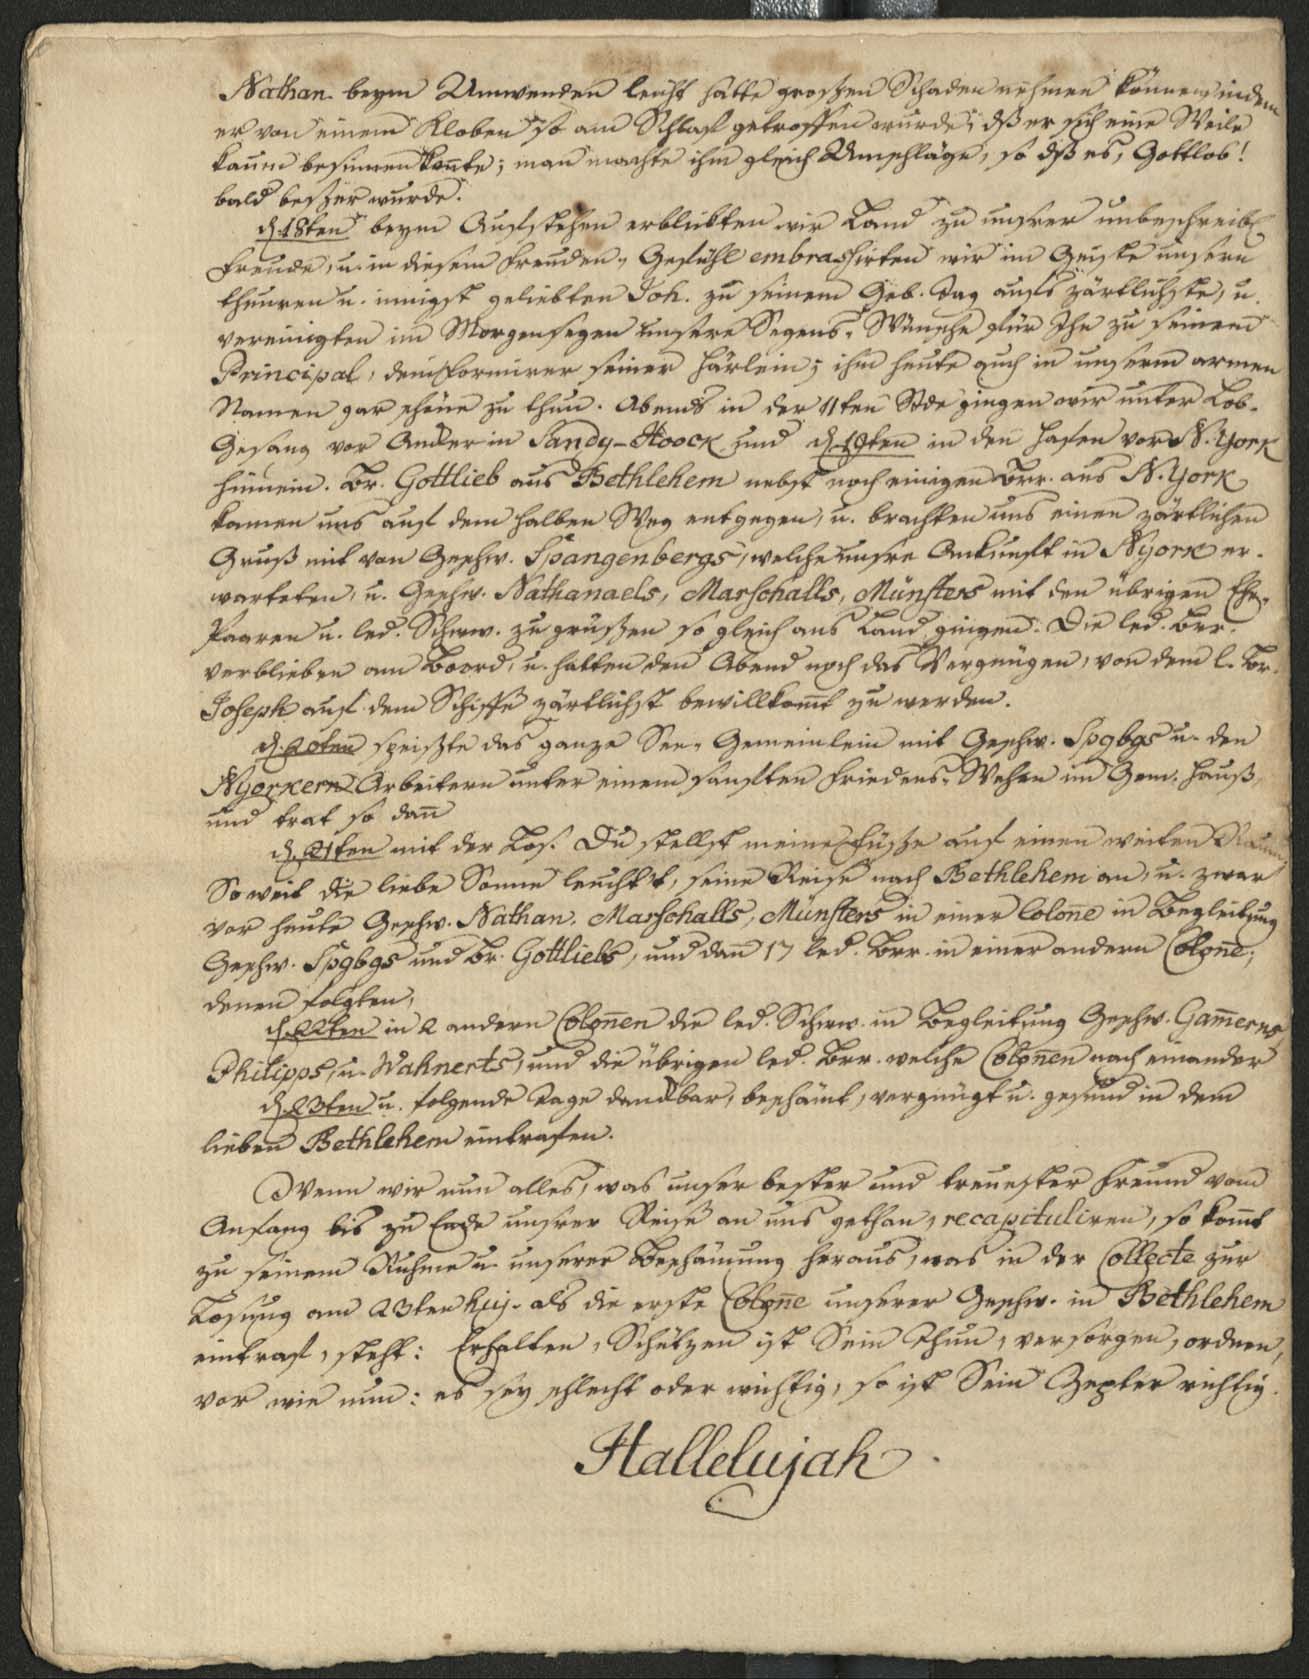 Nathan. beym Umwenden leicht hätte großen Schaden nehmen können indem
er von einem Kloben so am Schlaf getroffen wurde, dß er sich eine Weile
kaum besinnen konte; man machte ihm gleich Umschläge, so dß es, Gottlob!
bald beßer wurde.
d. 18ten beym Aufstehen erblikten wir Land zu unsrer unbeschreibl.
Freude, u. in diesem Freuden-Gefühl embrassirten wir im Geiste unsern
theuren u. innigst geliebten Joh. zu seinem Geb. Tag aufs zärtlichste, u.
vereinigten im Morgensegen unsere Segens-Wünsche für Ihn zu seinem
Principal, dem Formirer seiner Härlein; ihm heute auch in unserm armen
Namen gar schöne zu thun. Abends in der 11ten Stde gingen wir unter Lob-
Gesang vor Ancker in Sandy-Hoock und d. 19ten in den Hafen vor N. York
hinein. Br. Gottlieb aus Bethlehem nebst noch einigen Brr. aus N. York
kamen uns auf dem halben Weg entgegen, u. brachten uns einen zärtlichen
Gruß mit von Geschw. Spangenbergs, welche unsre Ankunft in NYork er-
warteten, u. Geschw. Nathanaels, Marschalls, Münsters mit den übrigen Ehe-
Paaren u. led. Schww. zu grüßen so gleich ans Land gingen. Die led. Brr.
verblieben am Boord, u. hatten den Abend noch das Vergnügen, von dem l. Br.
Joseph auf dem Schiffe zärtlichst bewillkomt zu werden.
d. 20ten speißte das ganze See-Gemeinlein mit Geschw. Spgbgs u. den
NYorkern Arbeitern unter einem sanften Friedens-Wehen im Gem. Hauß,
und trat so dan̄
d. 21ten mit der Los. Du stellst meine Füße auf einen weiten Raum,
So weit die liebe Sonne leucht't, seine Reise nach Bethlehem an, u. zwar
vor heute Geschw. Nathan. Marschalls, Münsters in einer Colon̄e in Begleitung
Geschw. Spgbgs und Br. Gottliebs, und dan̄ 17 led. Brr. in einer andern Colon̄e;
denen folgten,
d. 22ten in 2 andern Colon̄en die led. Schww. in Begleitung Geschw. Gam̄erns,
Philipps, u. Wahnerts, und die übrigen led. Brr. welche Colon̄en nach einander
d. 23ten u. folgende Tage danckbar, beschämt, vergnügt u. gesund in dem
lieben Bethlehem eintrafen.
Wenn wir nun alles, was unser bester und treuester Freund vom
Anfang bis zu Ende unsrer Reise an uns gethan, recapituliren, so kom̄t
zu seinem Ruhme u. unserer Beschämung heraus, was in der Collecte zur
Losung am 23ten huj. als die erste Colon̄e unserer Geschw. in Bethlehem
eintraf, steht: Erhalten, Schützen ist Sein Thun, versorgen, ordnen,
vor wie nun: es sey schlecht oder wichtig, so ist Sein Zepter richtig.
Hallelujah.